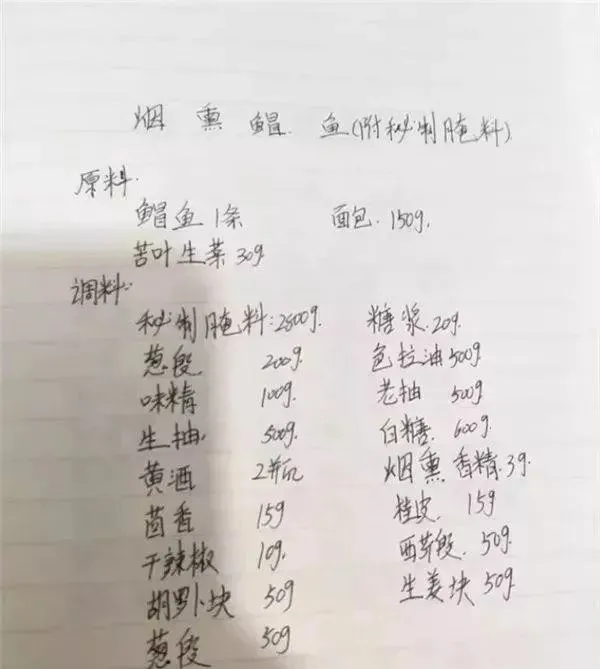 烟熏鲳鱼(附秘制腌料)
原料:
鲳鱼1条 面包.150g.
苦叶生菜30g
调料:
秘制腌料:2500g. 糖浆.20g.
葱段 200g 色拉油500g
味精 100g. 老抽 500g
生抽 500g. 白糖.600g.
黄酒 2瓶 烟熏香精.3g.
茴香 15g 桂皮. 15g
干辣椒 10g. 西芹段.50g.
胡罗卜块 50g 生姜块50g
葱段 50g